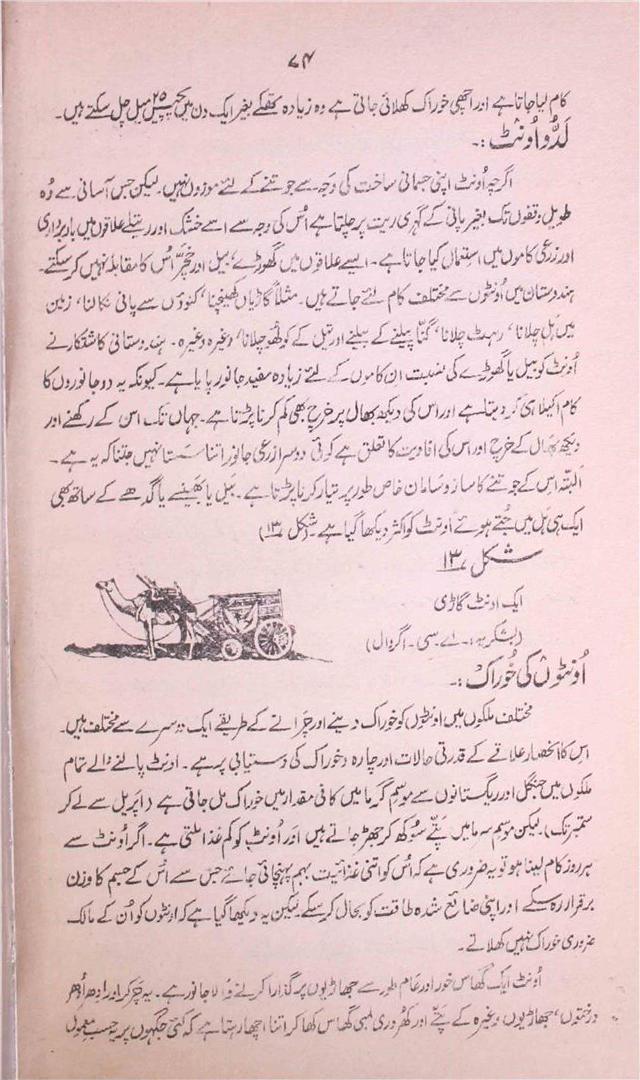 ۷۴
کام لیا جاتا ہے اور اچھی خوراک کھلائی جاتی ہے وہ زیادہ تھکے بغیر ایک دن میں پچیس ۲۵ میل چل سکتے ہیں۔
لدّو اونٹ :۔
اگرچہ اُونٹ اپنی جسمانی ساخت کی وجہ سے جوتنے کے لئے موزوں نہیں۔ لیکن جس آسانی سے وُہ
طویل وقفوں تک بغیر پانی کے گہری ریت پر چلتا ہے اُس کی وجہ سے اسے خشک اور ریتلے علاقوں میں باربرداری
اور زرعی کاموں میں استعمال کیا جاتا ہے۔ ایسے علاقوں میں گھوڑے، بیل اور خچّر اُس کا مقابلہ نہیں کرسکتے۔
ہندوستان میں اُونٹوں سے مختلف کام لئے جاتے ہیں۔ مثلاً گاڑیاں کھینچنا، کنوؤں سے پانی نکالنا، زمین
میں ہل چلانا، رہٹ چلانا، گنّا پیلنے کے بیلنے اور تیل کے کولھو چلانا، وغیرہ وغیرہ۔ ہندوستانی کاشتکار نے
اُونٹ کو بیل یا گھوڑے کی نسبت ان کاموں کے لئے زیادہ مفید جانور پایا ہے۔ کیونکہ یہ دو جانوروں کا
کام اکیلا ہی کر دیتا ہے اور اس کی دیکھ بھال پر خرچ بھی کم کرنا پڑتا ہے۔ جہاں تک اس کے رکھنے اور
دیکھ بھال کے خرچ اور اس کی افادیت کا تعلق ہے کوئی دوسرا زرعی جانور اتنا سستا نہیں جتنا کہ یہ ہے۔
البتہ اس کے جوتنے کا ساز و سامان خاص طور پر تیار کرنا پڑتا ہے۔ بیل یا بھینسے یا گدھے کے ساتھ بھی
ایک ہی ہل میں جُتے ہوئے اُونٹ کو اکثر دیکھا گیا ہے۔ (شکل ۱۳)
شکل ۱۳
ایک اونٹ گاڑی
(بشکریہ:۔ اے۔ سی۔ اگروال)
اُونٹوں کی خُوراک :۔
مختلف ملکوں میں اونٹوں کو خوراک دینے اور چَرانے کے طریقے ایک دوسرے سے مختلف ہیں۔
اس کا انحصار علاقے کے قدرتی حالات اور چارہ و خوراک کی دستیابی پر ہے۔ اونٹ پالنے والے تمام
ملکوں میں جنگل اور ریگستانوں سے موسم گرما میں کافی مقدار میں خوراک مل جاتی ہے (اپریل سے لے کر
ستمبر تک) لیکن موسم سرما میں پتّے سُوکھ کر جھڑ جاتے ہیں اور اُونٹ کو کم غذا ملتی ہے۔ اگر اُونٹ سے
ہر روز کام لینا ہو تو یہ ضروری ہے کہ اُس کو اتنی غذائیت بہم پہنچائی جائے جس سے اُس کے جسم کا وزن
برقرار رہ سکے اور اپنی ضائع شدہ طاقت کو بحال کرسکے۔ لیکن یہ دیکھا گیا ہے کہ اونٹوں کو اُن کے مالک
ضروری خوراک نہیں کھلاتے۔
اُونٹ ایک گھاس خور اور عام طور سے جھاڑیوں پر گذارا کرنے والا جانور ہے۔ یہ چر کر اور ادھر اُدھر
درختوں، جھاڑیوں، وغیرہ کے پتّے اور کھردری لمبی گھاس کھا کر اتنا اچھا رہتا ہے کہ کئی جگہوں پر حسب معمول